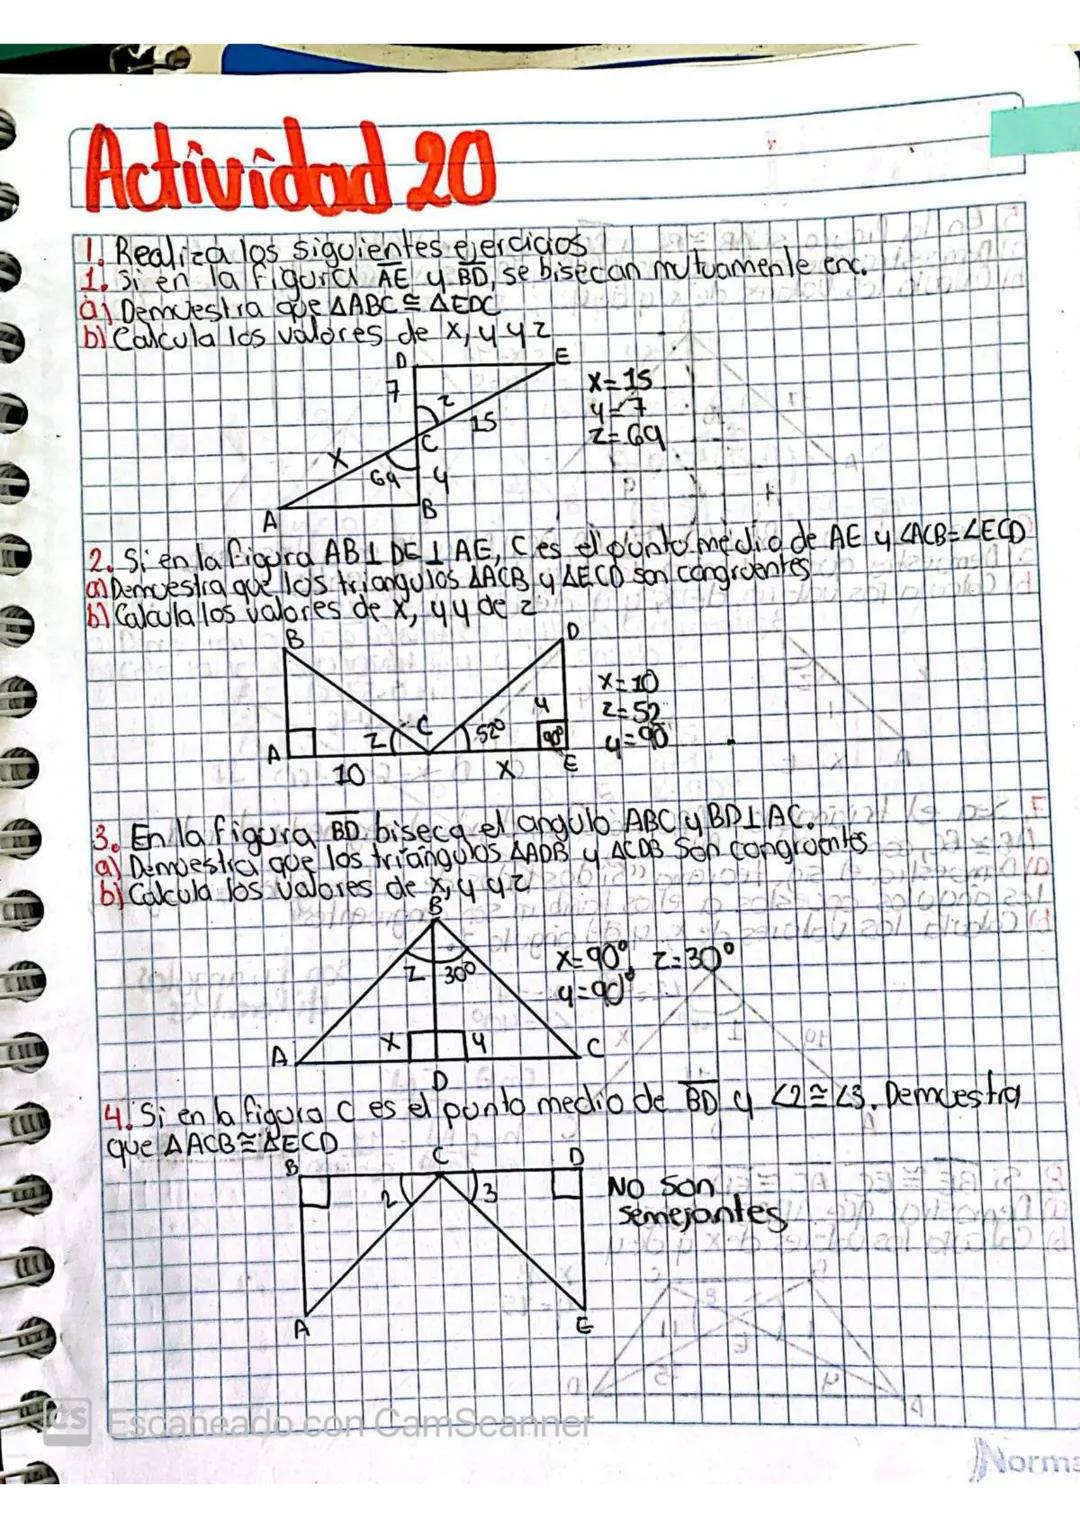 Actividad 20
1. Realiza los siguientes ejercicios
1. Si en la figura AE y BD, se bisecan mutuamente en c.
a) Demuestra que △ABC ≅ △EDC
b) Calcula los valores de x, y y z
D E
7 z 15
C
x 69 y
A B
x=15
y=7
z=69
2. Si en la figura AB⊥DE⊥AE, C es el punto medio de AE y ∠ACB=∠ECD
a) Demuestra que los triangulos △ACB y △ECD son congruentes
b) Calcula los valores de x, y y de z
B D
A z C 52° y 90° E
10 x
x=10
z=52
y=90
3. En la figura BD biseca el angulo ABC y BD⊥AC.
a) Demuestra que los triángulos △ADB y △CDB son congruentes
b) Calcula los valores de x, y y z
B
z 30°
A x y C
D
x=90° z=30°
y=90°
4. Si en la figura C es el punto medio de BD y ∠2≅∠3. Demuestra
que △ACB≅△ECD
B C D
2 3
A E
No son
semejantes
CS Escaneado con CamScanner
Norma